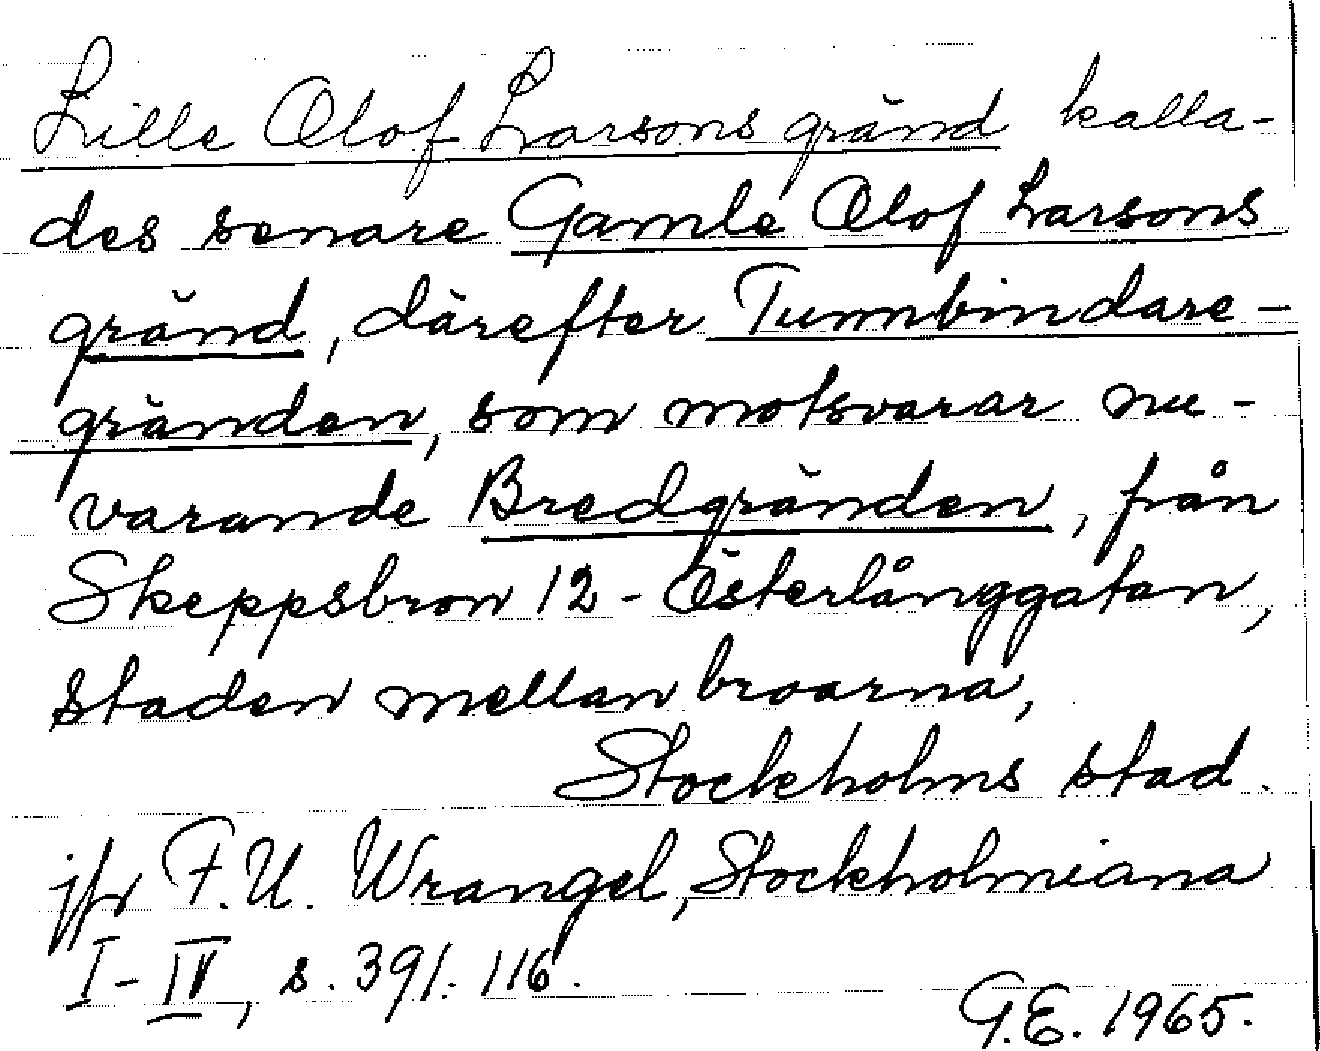 Lille Olof Larsons gränd kalla-
des senare Gamle Olof Larsons
gränd, därefter Tunnbindare-
gränden, som motsvarar nu-
varande Bredgränden, från
Skeppsbron 12 - Österlånggatan,
staden mellan broarna,
Stockholms stad.
jfr F.U. Wrangel, Stockholmiana
I-IV, s. 391. 116.
G.E. 1965.